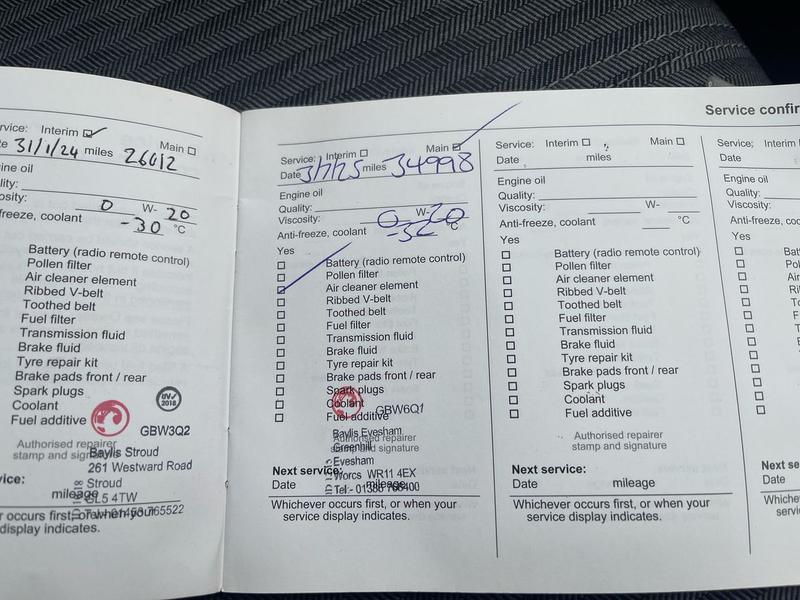 Service confir
rvice: Interim ☑ Main ☐
te 31/1/24 miles 26012
ine oil
lity:
osity: 0 W- 20
freeze, coolant -30 °C
Battery (radio remote control)
Pollen filter
Air cleaner element
Ribbed V-belt
Toothed belt
Fuel filter
Transmission fluid
Brake fluid
Tyre repair kit
Brake pads front / rear
Spark plugs
Coolant
Fuel additive
2018
GBW3Q2
Authorised repairer
stamp and signature
Baylis Stroud
261 Westward Road
Stroud
GL5 4TW
vice:
mileage
r occurs first, or when your
display indicates.
Service: Interim ☐ Main ☑
Date miles 34998
Engine oil
Quality:
Viscosity: 0 W- 20
Anti-freeze, coolant °C
Yes
☐ Battery (radio remote control)
☐ Pollen filter
☑ Air cleaner element
☐ Ribbed V-belt
☐ Toothed belt
☐ Fuel filter
☐ Transmission fluid
☐ Brake fluid
☐ Tyre repair kit
☐ Brake pads front / rear
☐ Spark plugs
☐ Coolant
☐ Fuel additive
GBW6Q1
Authorised repairer
stamp and signature
Baylis Evesham
Greenhill
Evesham
Worcs WR11 4EX
Next service:
Date mileage
Whichever occurs first, or when your
service display indicates.
Service: Interim ☐ Main ☐
Date miles
Engine oil
Quality:
Viscosity: W-
Anti-freeze, coolant °C
Yes
☐ Battery (radio remote control)
☐ Pollen filter
☐ Air cleaner element
☐ Ribbed V-belt
☐ Toothed belt
☐ Fuel filter
☐ Transmission fluid
☐ Brake fluid
☐ Tyre repair kit
☐ Brake pads front / rear
☐ Spark plugs
☐ Coolant
☐ Fuel additive
Authorised repairer
stamp and signature
Next service:
Date mileage
Whichever occurs first, or when your
service display indicates.
Service; Interim
Date
Engine oil
Quality:
Viscosity:
Anti-freeze,
Yes
☐ Batt
☐ Po
☐ Ai
☐ R
Next se
Date
Whiche
servi